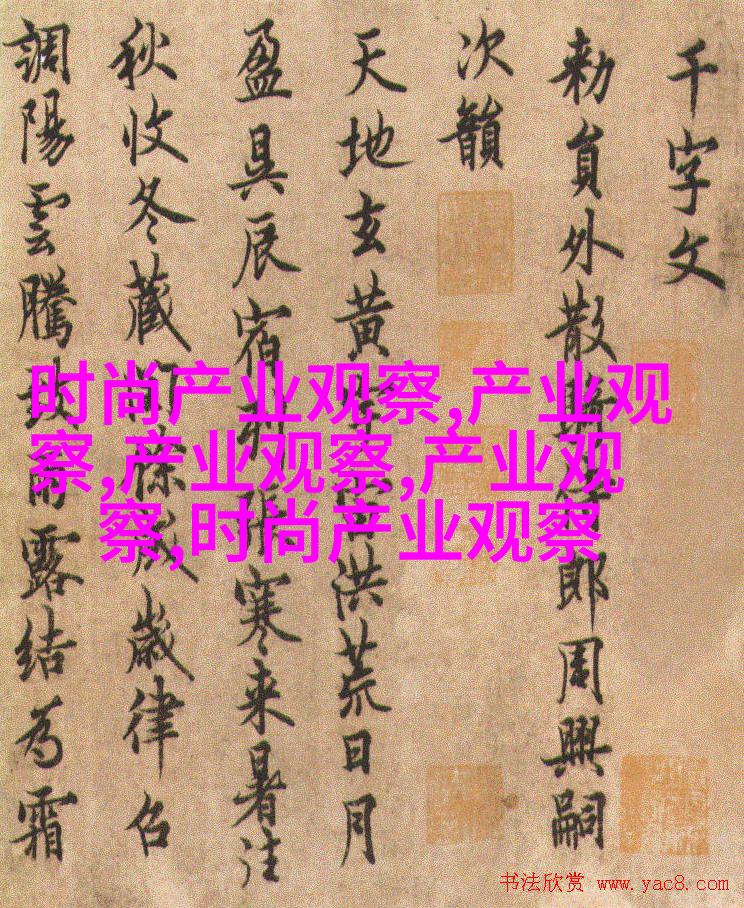 千字文
勅員外散騎侍郎周興嗣
次韻
天地玄黄宇宙洪荒日月
盈昃辰宿列張寒来暑往
秋收冬藏閏餘成歲律召
調陽雲騰致雨露結為霜
时尚产业观察,产业观
察,产业观察,产业观
察,时尚产业观察
书法欣赏 www.yac8.com